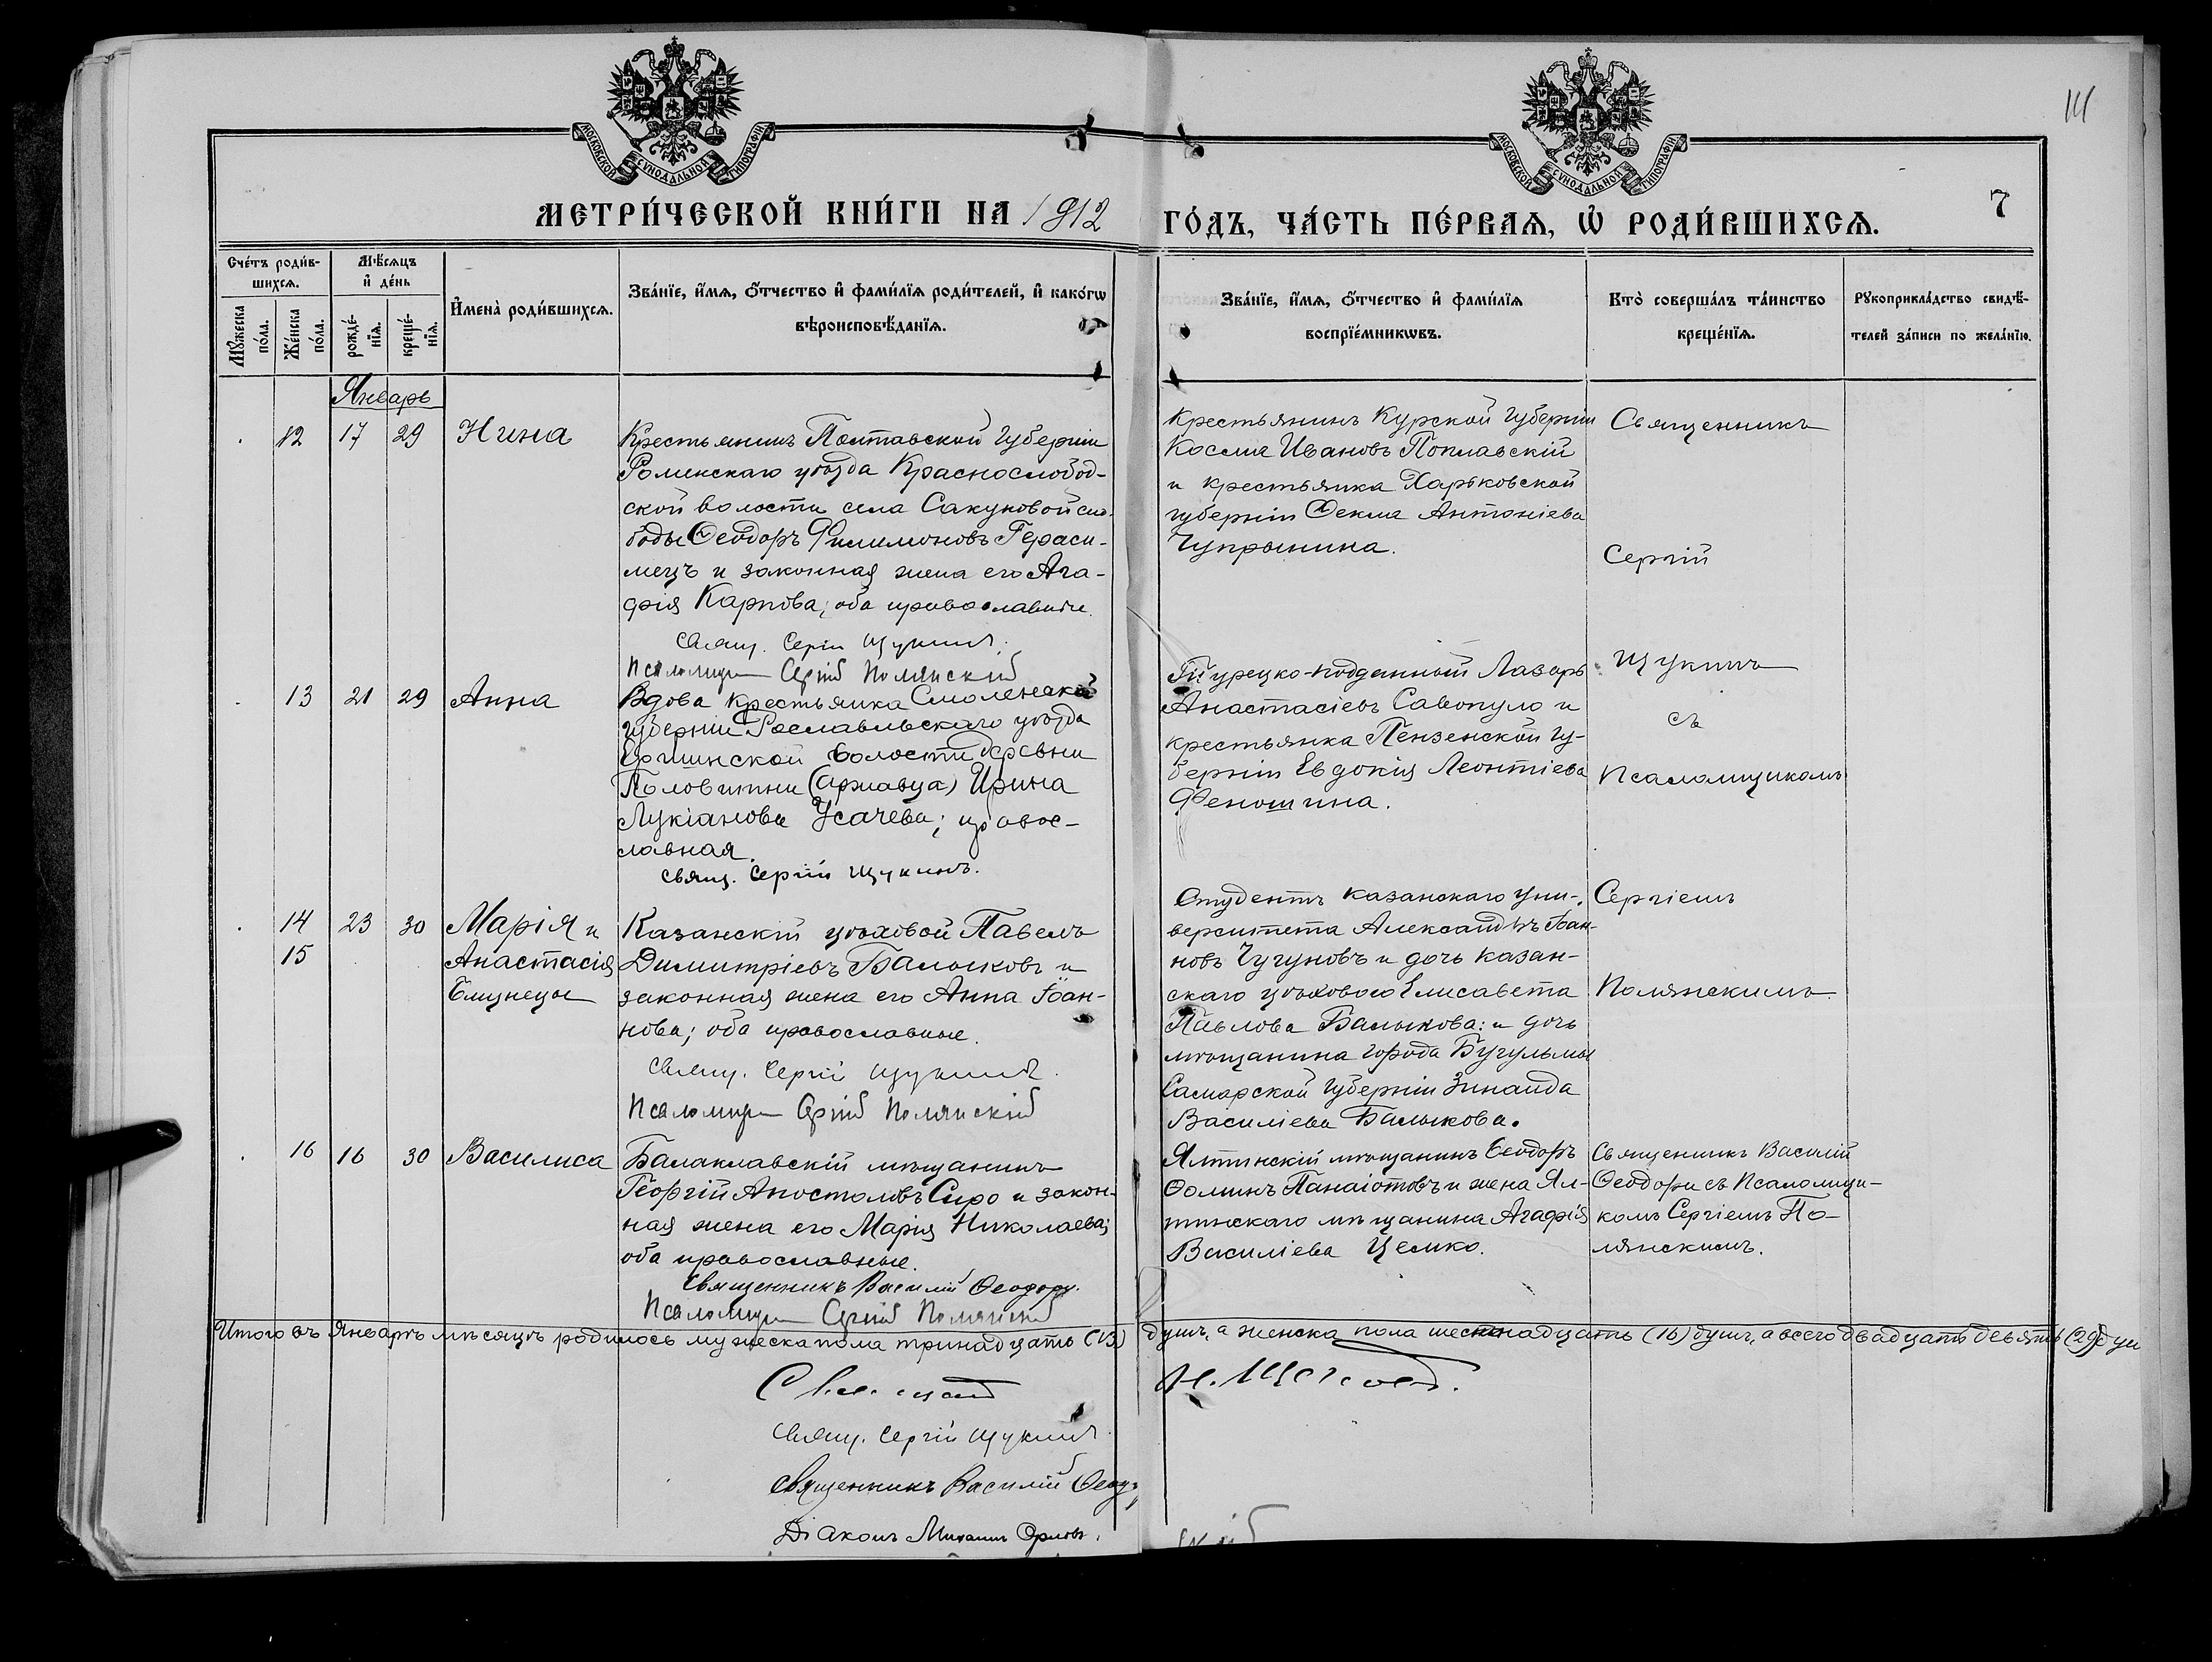 14
7
МОСКОВСКОЙ СѴНОДАЛЬНОЙ ТИПОГРАФІИ
МОСКОВСКОЙ СѴНОДАЛЬНОЙ ТИПОГРАФІИ
МЕТРИ́ЧЕСКОЙ КНИ́ГИ НА 1912
ГО́ДЪ, ЧА́СТЬ ПЕ́РВАѦ, Ѡ҆ РОДИ́ВШИХСѦ.
Сче́тъ роди́в-
шихсѧ.
Мꙋ́жеска по́ла.
Же́нска по́ла.
Мѣ́сѧцъ
и҆ де́нь
рожде́-нїѧ.
креще́-нїѧ.
И҆мена̀ роди́вшихсѧ.
Зва́нїе, и҆́мѧ, ѻ҆́тчество и҆ фами́лїѧ роди́телей, и҆ како́гѡ
вѣроисповѣ́данїѧ.
Зва́нїе, и҆́мѧ, ѻ҆́тчество и҆ фами́лїѧ
воспрїе́мникѡвъ.
Кто̀ соверша́лъ та́инство
креще́нїѧ.
Рꙋкоприкла́дство свидѣ́-
телей за́писи по жела́нїю.
Январь
12 17 29 Нина
Крестьянинъ Полтавской губерніи
Роменскаго уѣзда Краснослобод-
ской волости села Сакуновой сло-
боды Ѳеодоръ Филимоновъ Гераси-
мецъ и законная жена его Ага-
фія Карпова; оба православные.
Свящ. Сергій Щукинъ.
Псаломщикъ Сергій Полянскій
Крестьянинъ Курской губерніи
Косма Ивановъ Поплавскій
и крестьянка Харьковской
губерніи Ѳекла Антоніева
Чупрынина.
Священникъ
Сергій
Щукинъ
съ
Псаломщикомъ
Сергіемъ
Полянскимъ
13 21 29 Анна
Вдова крестьянка Смоленской
губерніи Рославльскаго уѣзда
волости деревни
Ирина
Лукіанова Усачева; правос-
лавная.
Свящ. Сергій Щукинъ.
Турецко-подданный Лазарь
Анастасіевъ Савопуло и
крестьянка Пензенской гу-
берніи Евдокія Леонтіева
Феношина.
14 23 30 Марія и
15 Анастасія
Близнецы
Казанскій цѣховой Павелъ
Димитріевъ Балыковъ и
законная жена его Анна Іоан-
нова; оба православные.
Свящ. Сергій Щукинъ.
Псаломщикъ Сергій Полянскій
Студентъ Казанскаго Уни-
верситета Александръ Іоан-
новъ Чугуновъ и дочь казан-
скаго цѣхового Елисавета
Павлова Балыкова: и дочь
мѣщанина города Бугульмы
Самарской губерніи Зинаида
Василіева Балыкова.
16 16 30 Василиса
Балаклавскій мѣщанинъ
Георгій Апостоловъ Сиро и закон-
ная жена его Марія Николаева;
оба православные.
Священникъ Василій Ѳеодори.
Псаломщикъ Сергій Полянскій
Ялтинскій мѣщанинъ Ѳеодоръ
Ѳоминъ Панаіотовъ и жена Ял-
тинскаго мѣщанина Агафія
Василіева Цемко.
Священникъ Василій
Ѳеодори съ Псаломщи-
комъ Сергіемъ По-
лянскимъ.
Итого въ Январѣ мѣсяцѣ родилось мужеска пола тринадцать (13) душъ, а женска пола шестнадцать (16) душъ, а всего двадцать девять (29) душ
Свящ. Сергій Щукинъ
Священникъ Василій
Діаконъ Михаилъ Орловъ.